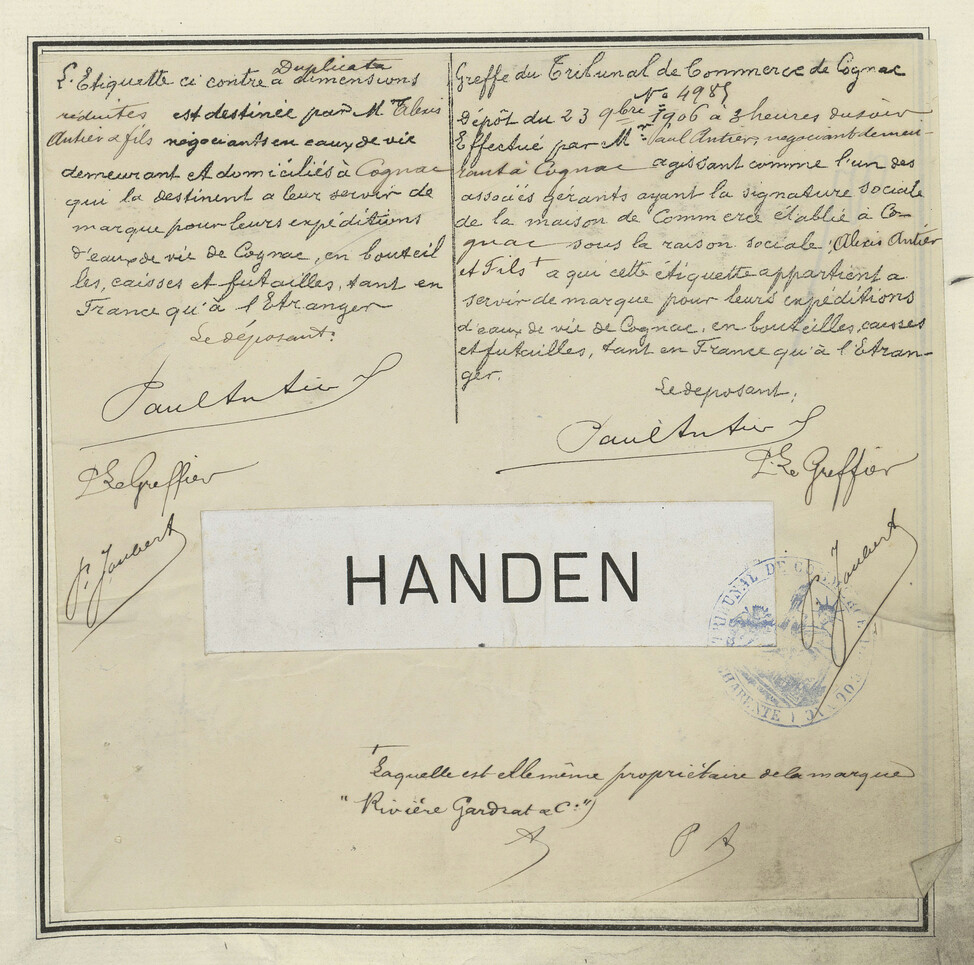 Duplicata
L'Etiquette ci contre à dimensions
réduites est destinée par M.rs Alexis
Antier & fils négociants en eaux de vie
demeurant et domiciliés à Cognac
qui la destinent a leur servir de
marque pour leurs expéditions
d'eaux de vie de Cognac, en bouteil
les, caisses et futailles, tant en
France qu'à l'Etranger
Le déposant:
Paul Antier
P. Le Greffier
P. Joubert
Greffe du Tribunal de Commerce de Cognac
No 4985
Dépôt du 23 9bre 1906 a 3 heures du soir
Effectué par M.r Paul Antier, négociant demeu-
rant à Cognac agissant comme l'un des
associés gérants ayant la signature sociale
de la maison de Commerce établie à Co-
gnac sous la raison sociale, Alexis Antier
et Fils + a qui cette étiquette appartient a
servir de marque pour leurs expéditions
d'eaux de vie de Cognac, en bouteilles, caisses
et futailles, tant en France qu'à l'Etran-
ger.
Le deposant,
Paul Antier
P. Le Greffier
P. Joubert
HANDEN
TRIBUNAL DE COMMERCE DE COGNAC
CHARENTE
+ Laquelle est elle même propriétaire de la marque
"Rivière Gardrat & Cie")
P A